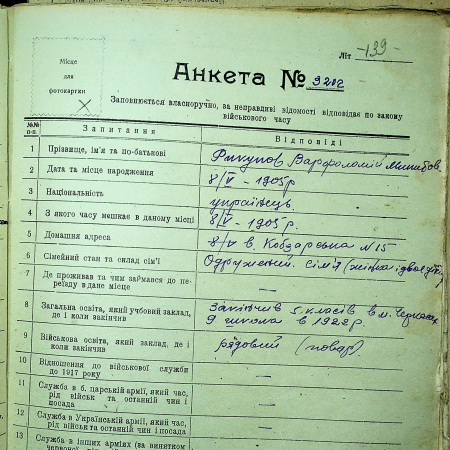 Літ -139-
Місце
для
фотокартки
Анкета № 9202
Заповнюється власноручно, за неправдиві відомості відповідає по закону
військового часу
№№ п-п. Запитання Відповіді
1 Прізвище, ім'я та по-батькові Варфоломій
2 Дата та місце народження 8/V - 1905 р
3 Національність українець
4 З якого часу мешкає в даному місці 8/V - 1905 р.
5 Домашня адреса 8/V в. Кобзарська №15
6 Сімейний стан та склад сім'ї Одружений. Сім'я (жінка і двоє
7 Де проживав та чим займався до пе-
реїзду в дане місце —
8 Загальна освіта, який учбовий заклад,
де і коли закінчив Закінчив 5 класів в м. Черкасах
школа в 1922 р.
9 Військова освіта, який заклад, де і
коли закінчив рядовий (повар)
10 Відношення до військової служби
до 1917 року —
11 Служба в б. царській армії, який час,
рід військ та останній чин і
посада —
12 Служба в Українській армії, який час,
рід військ та останній чин і посада —
13 Служба в інших арміях (за винятком